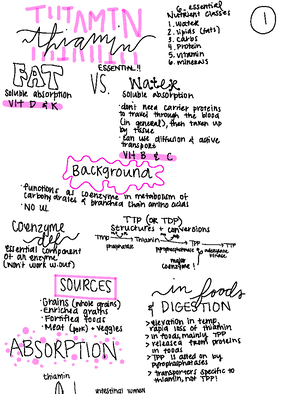 THIAMIN
thiamin
THIAMIN
ESSENTIAL!!
6 essential
Nutrient Classes
1. Water
2. Lipids (fats)
3. Carbs
4. Protein
5. Vitamin
6. Minerals
1
FAT
soluble absorption
VIT D & K
VS.
Water
soluble absorption
· don't need carrier proteins
to travel through the blood
(in general), then taken up
by tissue
· can use diffusion & active
transport
VIT B & C
Background
· functions as coenzyme in metabolism of
carbohydrates & branched chain amino acids
· NO UL
Coenzyme
def
essential component
of an enzyme
(won't work w.out)
TTP (OR TDP)
structures + conversions
TMP
Thiamin
TPP
TTP
phosphatase
pyrophosphatase
major
coenzyme!
SOURCES
· Grains (whole grains)
· Enriched grains
· Fortified foods
· Meat (pork) + veggies
in foods
& DIGESTION
> elevation in temp,
rapid loss of thiamin
> in foods, mainly TPP
> released from proteins
in foods
> TPP is acted on by
pyrophosphatases
> transporters specific to
thiamin, not TPP!
ABSORPTION
thiamin
intestinal lumen